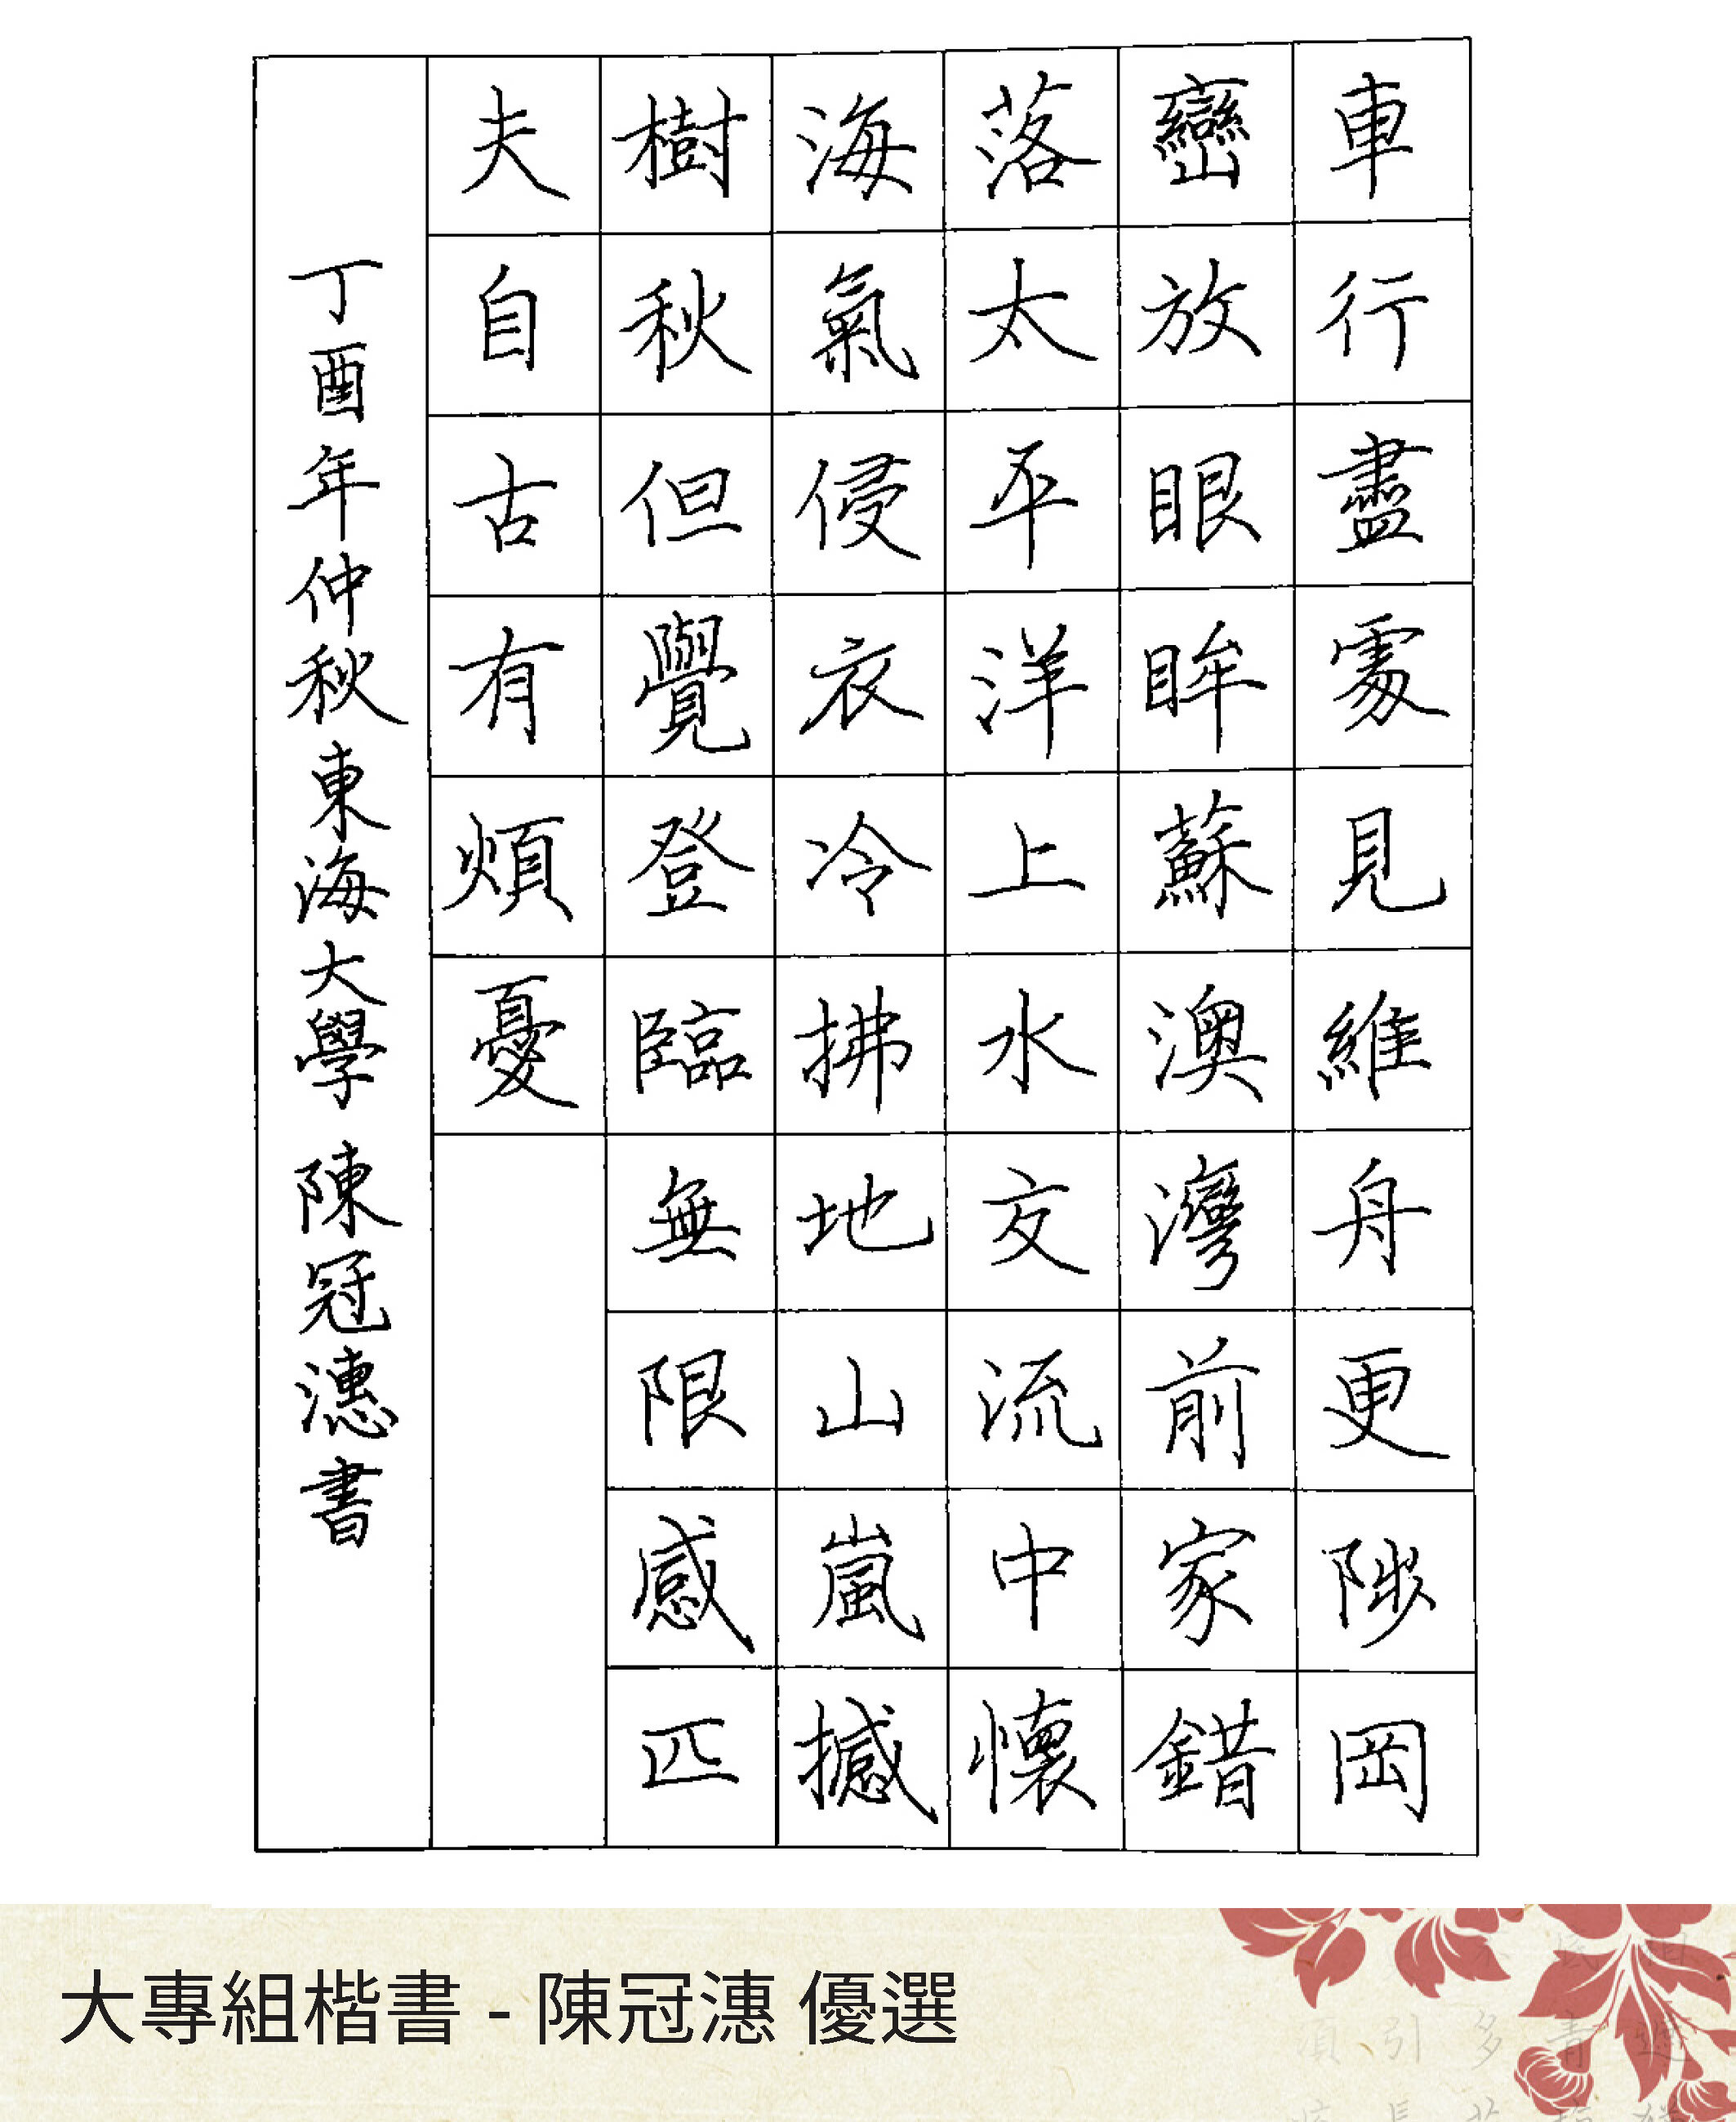 車行盡處見維舟更陟岡
巒放眼眸蘇澳灣前家錯
落太平洋上水交流中懷
海氣侵衣冷拂地山嵐撼
樹秋但覺登臨無限感匹
夫自古有煩憂
丁酉年仲秋東海大學 陳冠漶書
大專組楷書 - 陳冠漶 優選